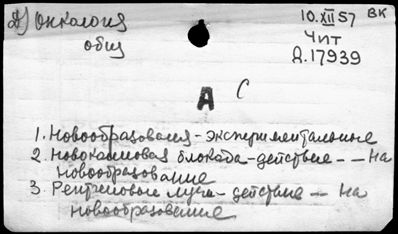 А) Онкология
общ
10.XII 57 ВК
Чит
Д.17939
А С
1. Новообразования - экспериментальные
2. Новокаиновая блокада - действие - - на
новообразование
3. Рентгеновы лучи - действие - на
новообразование